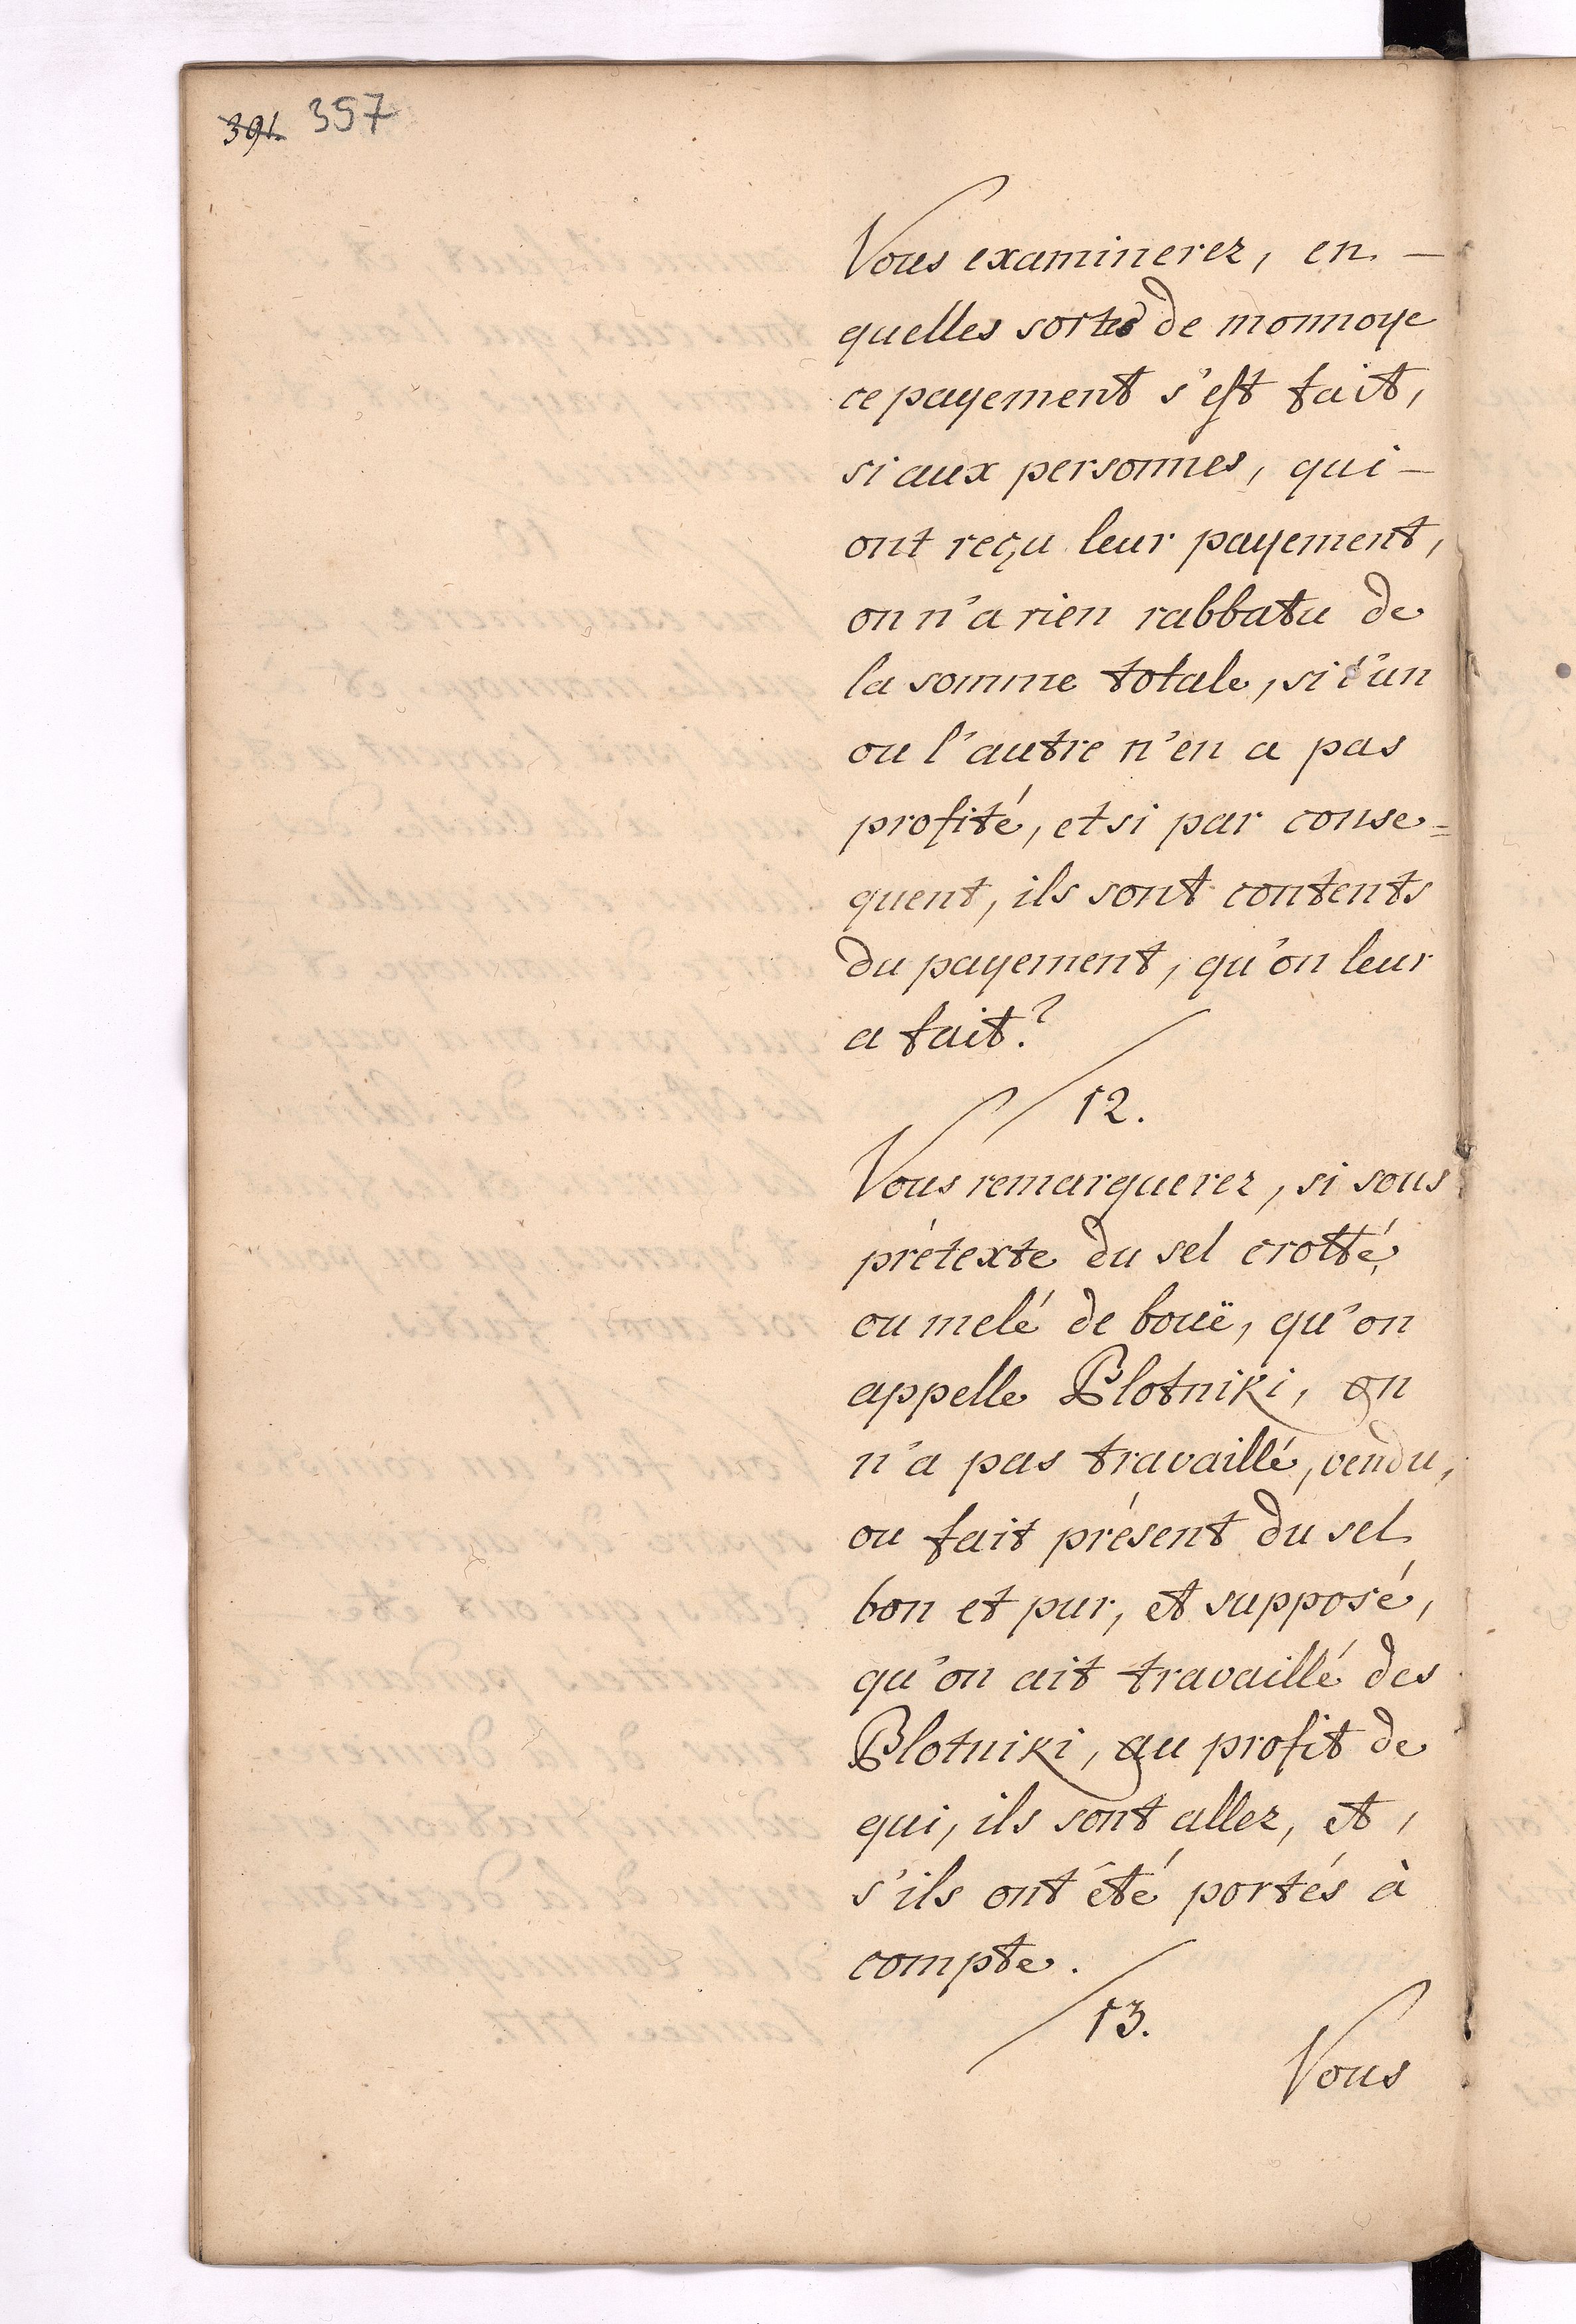 391. 357
Vous examinerez, en —
quelles sortes de monnoye
ce payement s'est fait,
si aux personnes, qui —
ont reçu leur payement,
on n'a rien rabbatu de
la somme totale, si l'un
ou l'autre n'en a pas
profité, et si par conse=
quent, ils sont contents
du payement, qu'on leur
a fait?
12.
Vous remarquerez, si sous
prétexte du sel crotté,
ou melé de bouë, qu'on
appelle Blotniki, on
n'a pas travaillé, vendu,
ou fait présent du sel
bon et pur, et supposé,
qu'on ait travaillé des
Blotniki, au profit de
qui, ils sont allez, et,
s'ils ont été portés à
compte.
13.
Vous